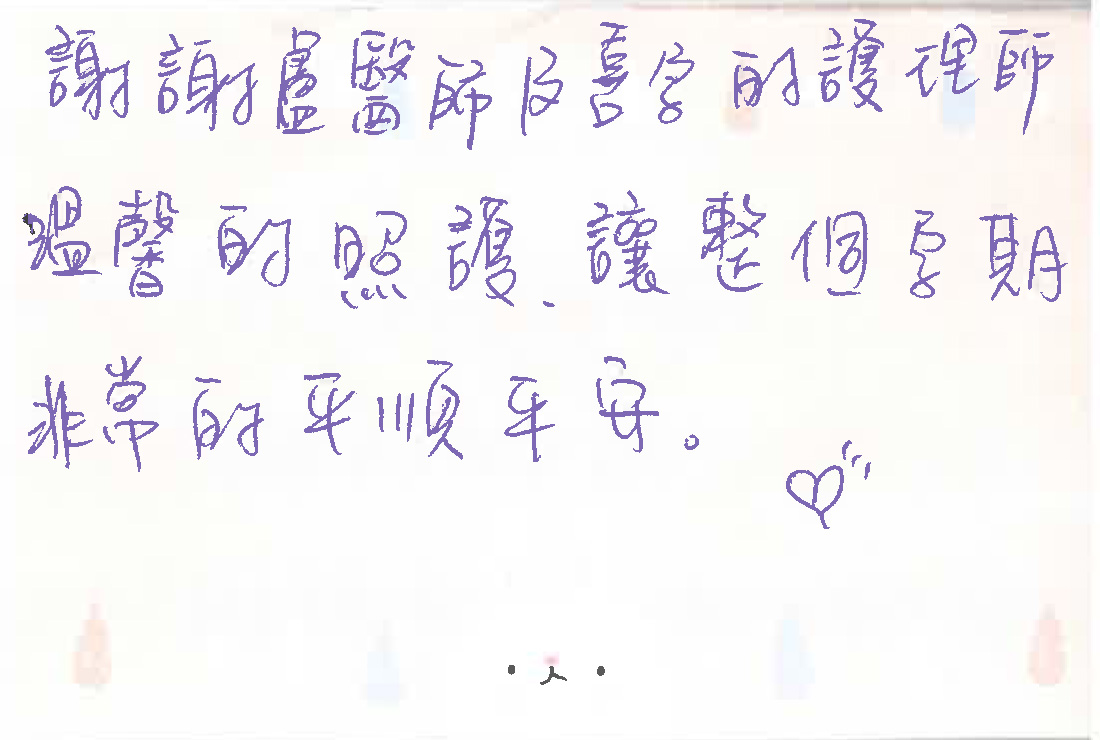 謝謝盧醫師及喜孕的護理師
溫馨的照護、讓整個孕期
非常的平順平安。